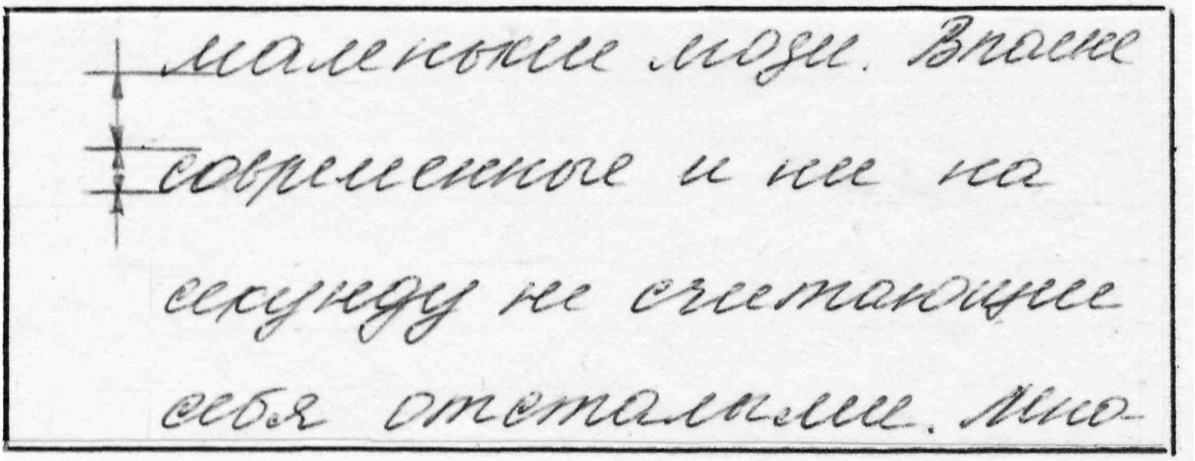 маленькие люди. Вполне
современные и ни на
секунду не считающие
себя отсталыми. Мно-